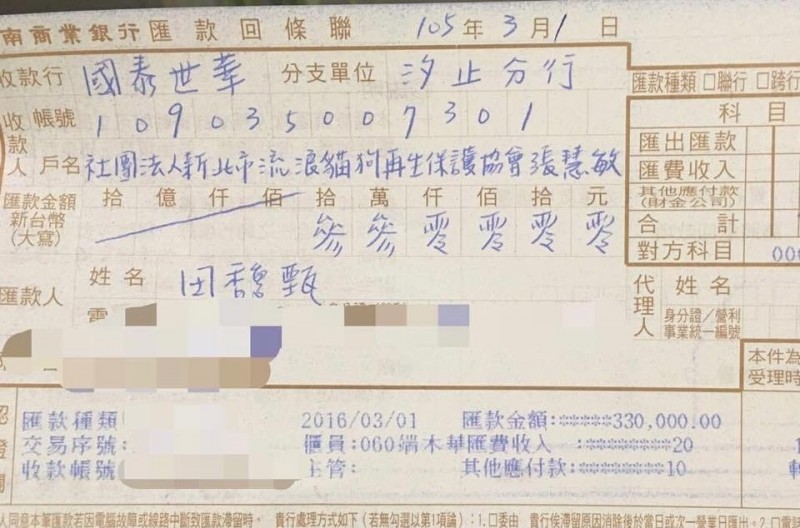 南商業銀行匯款回條聯 105年3月1日
收款行 國泰世華 分支單位 汐止分行 匯款種類 □聯行 □跨行
收款人 帳號 109035007301 科目
戶名 社團法人新北市流浪貓狗再生保護協會張慧敏 匯出匯款
匯費收入
匯款金額 新台幣 (大寫) 拾 億 仟 佰 拾 萬 仟 佰 拾 元 其他應付款 (財金公司)
參 參 零 零 零 零 合計
對方科目 00
匯款人 姓名 田馥甄 代理人 姓名
身分證/營利事業統一編號
本件為
受理時
匯款種類 2016/03/01 匯款金額:*****330,000.00
交易序號: 櫃員:060端木華 匯費收入 :********20
收款帳號 主管: 其他應付款:********10
人同意本筆匯款若因電腦故障或線路中斷致匯款滯留時, 貴行處理方式如下(若無勾選以第1項論):1.□委由 貴行俟滯留原因消除後於當日或次一營業日匯出。2.□